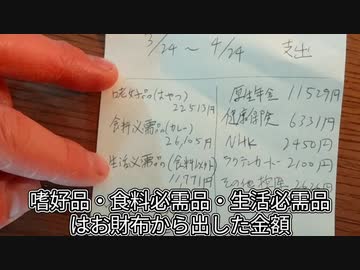 3/24 ~ 4/24 支出
嗜好品(おやつ)
22,513円
食料必需品(カレー)
26,105円
生活必需品(食料以外)
11,771円
厚生年金 11529円
健康保険 6331円
NHK 2450円
2100円
嗜好品・食料必需品・生活必需品
はお財布から出した金額